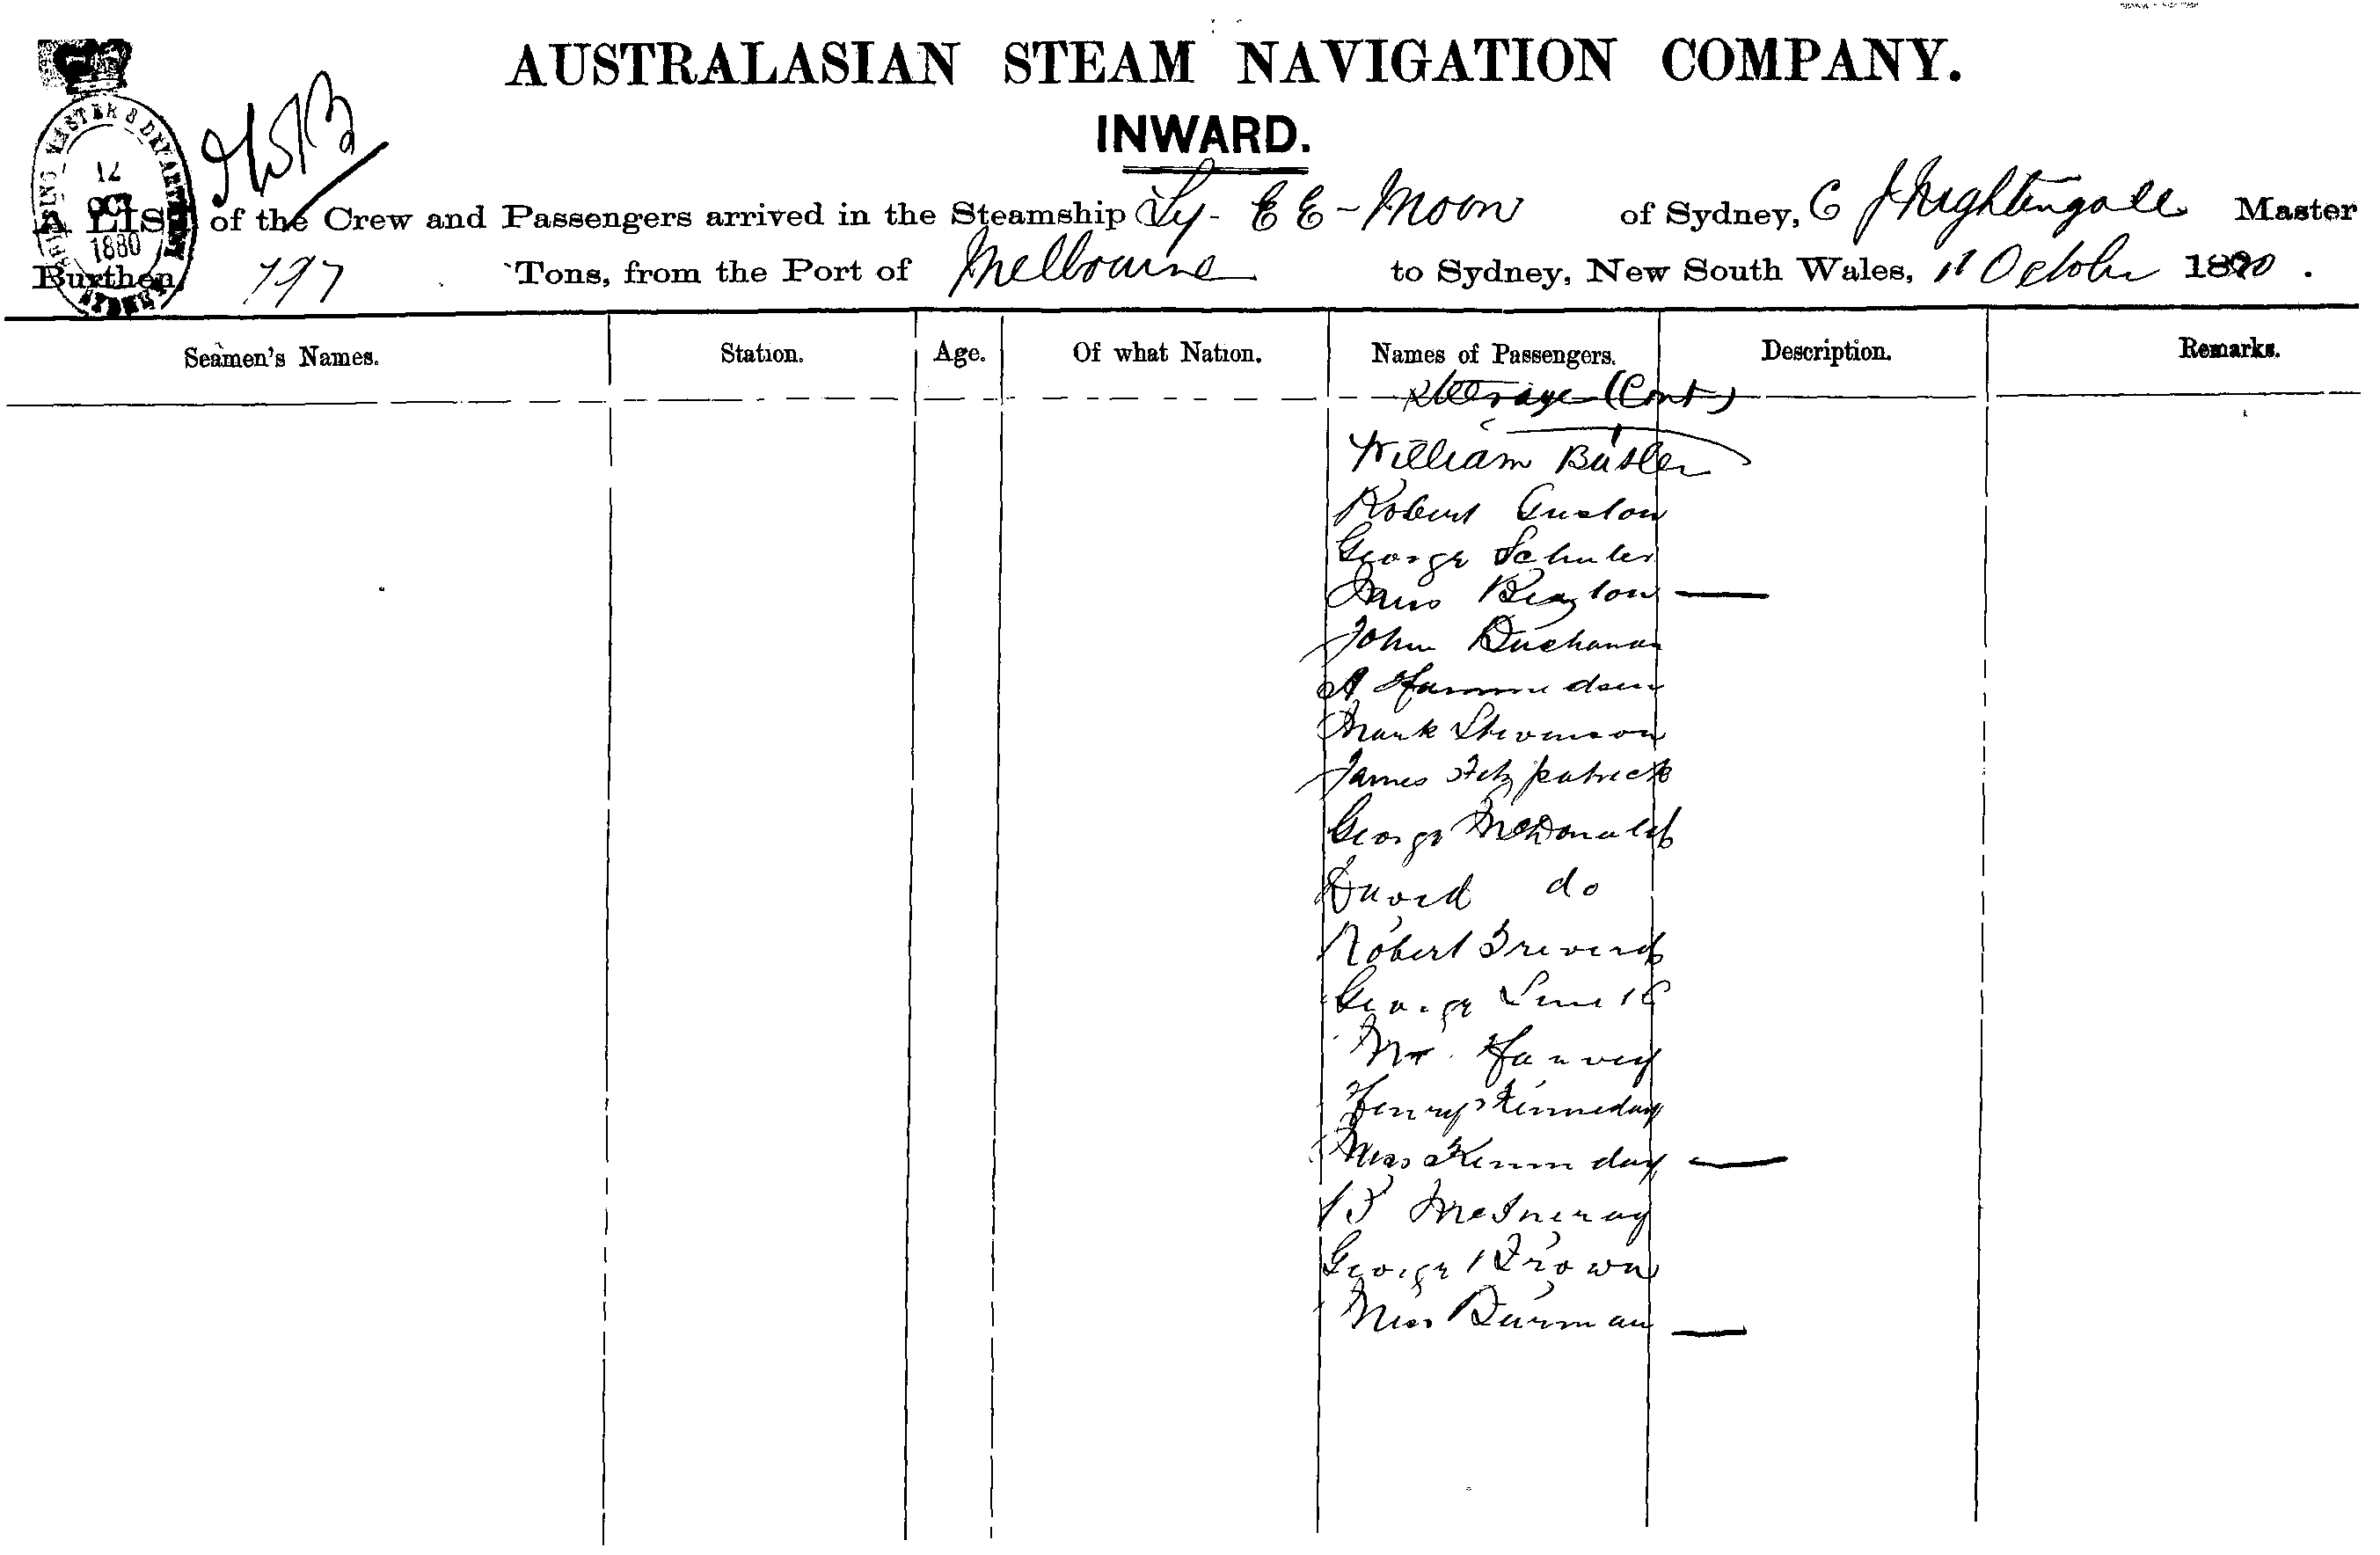 AUSTRALASIAN STEAM NAVIGATION COMPANY.
INWARD.
12
OCT
1880
A LIST of the Crew and Passengers arrived in the Steamship Ly-EE-Moon of Sydney, C J Nightingale Master
Burthen 797 Tons, from the Port of Melbourne to Sydney, New South Wales, 11 October 1880.
Seamen's Names. Station. Age. Of what Nation. Names of Passengers. Description. Remarks.
Steerage (Cont)
William Butler
Robert
George Schuler
Miss
John Buchanan
A
Mark Stevenson
James Fitzpatrick
George McDonald
David do
Robert
George
Mr. Harvey
Henry Kenneday
Miss Kenneday
George Brown
Miss Burman